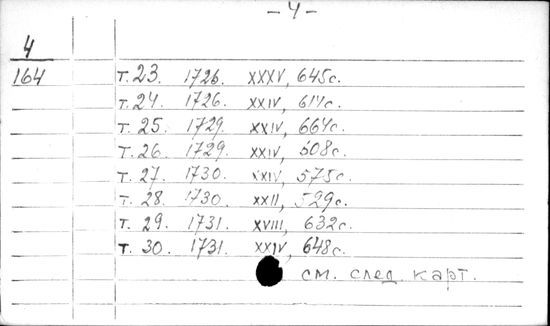 -4-
4
164
т. 23. 1726. XXXV, 645с.
т. 24. 1726. XXIV, 614с.
т. 25. 1729. XXIV, 664с.
т. 26. 1729. XXIV, 508с.
т. 27. 1730. XXIV, 575с.
т. 28. 1730. XXII, 529с.
т. 29. 1731. XVIII, 632с.
т. 30. 1731. XXIV, 648с.
см. след. карт.